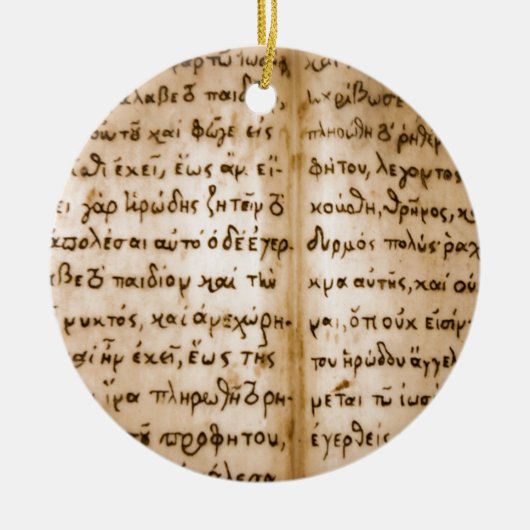 αρ τῶ ἰωσήφ,
αλαβε τὸ παιδίον,
αὐτοῦ καὶ φεῦγε εἰς
σθι ἐκεῖ, ἕως ἂν εἴ-
ει γὰρ ἡρώδης ζητεῖν τὸ
ἀπολέσαι αὐτό ὁ δὲ ἐγερ-
αβε τὸ παιδίον καὶ τὴν
νυκτός, καὶ ἀνεχώρη-
αὶ ἦν ἐκεῖ, ἕως τῆς
ἵνα πληρωθῆ τὸ ρη-
τοῦ προφήτου,
άλεσα
καὶ
ἠκρίβωσε
πληρώθη τὸ ῥηθεν
φήτου, λέγοντος
κούσθη, θρῆνος, κ
δυρμὸς πολύς· ραχ
κνα αὐτῆς, καὶ οὐ
ναι, ὅτι οὐκ εἰσίν
του ἡρώδου ἄγγελ
νεται τῶ ἰωσ
ἐγερθεὶς